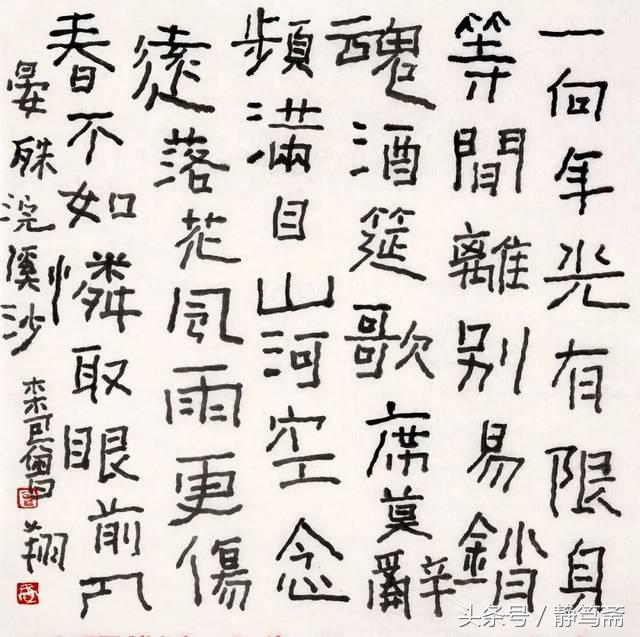 一向年光有限身
等間離别易銷
䰟酒筵歌席莫辭
頻滿目山河空念
遠落花風雨更傷
春不如憐取眼前人
晏殊浣溪沙
头条号 / 静笃斋